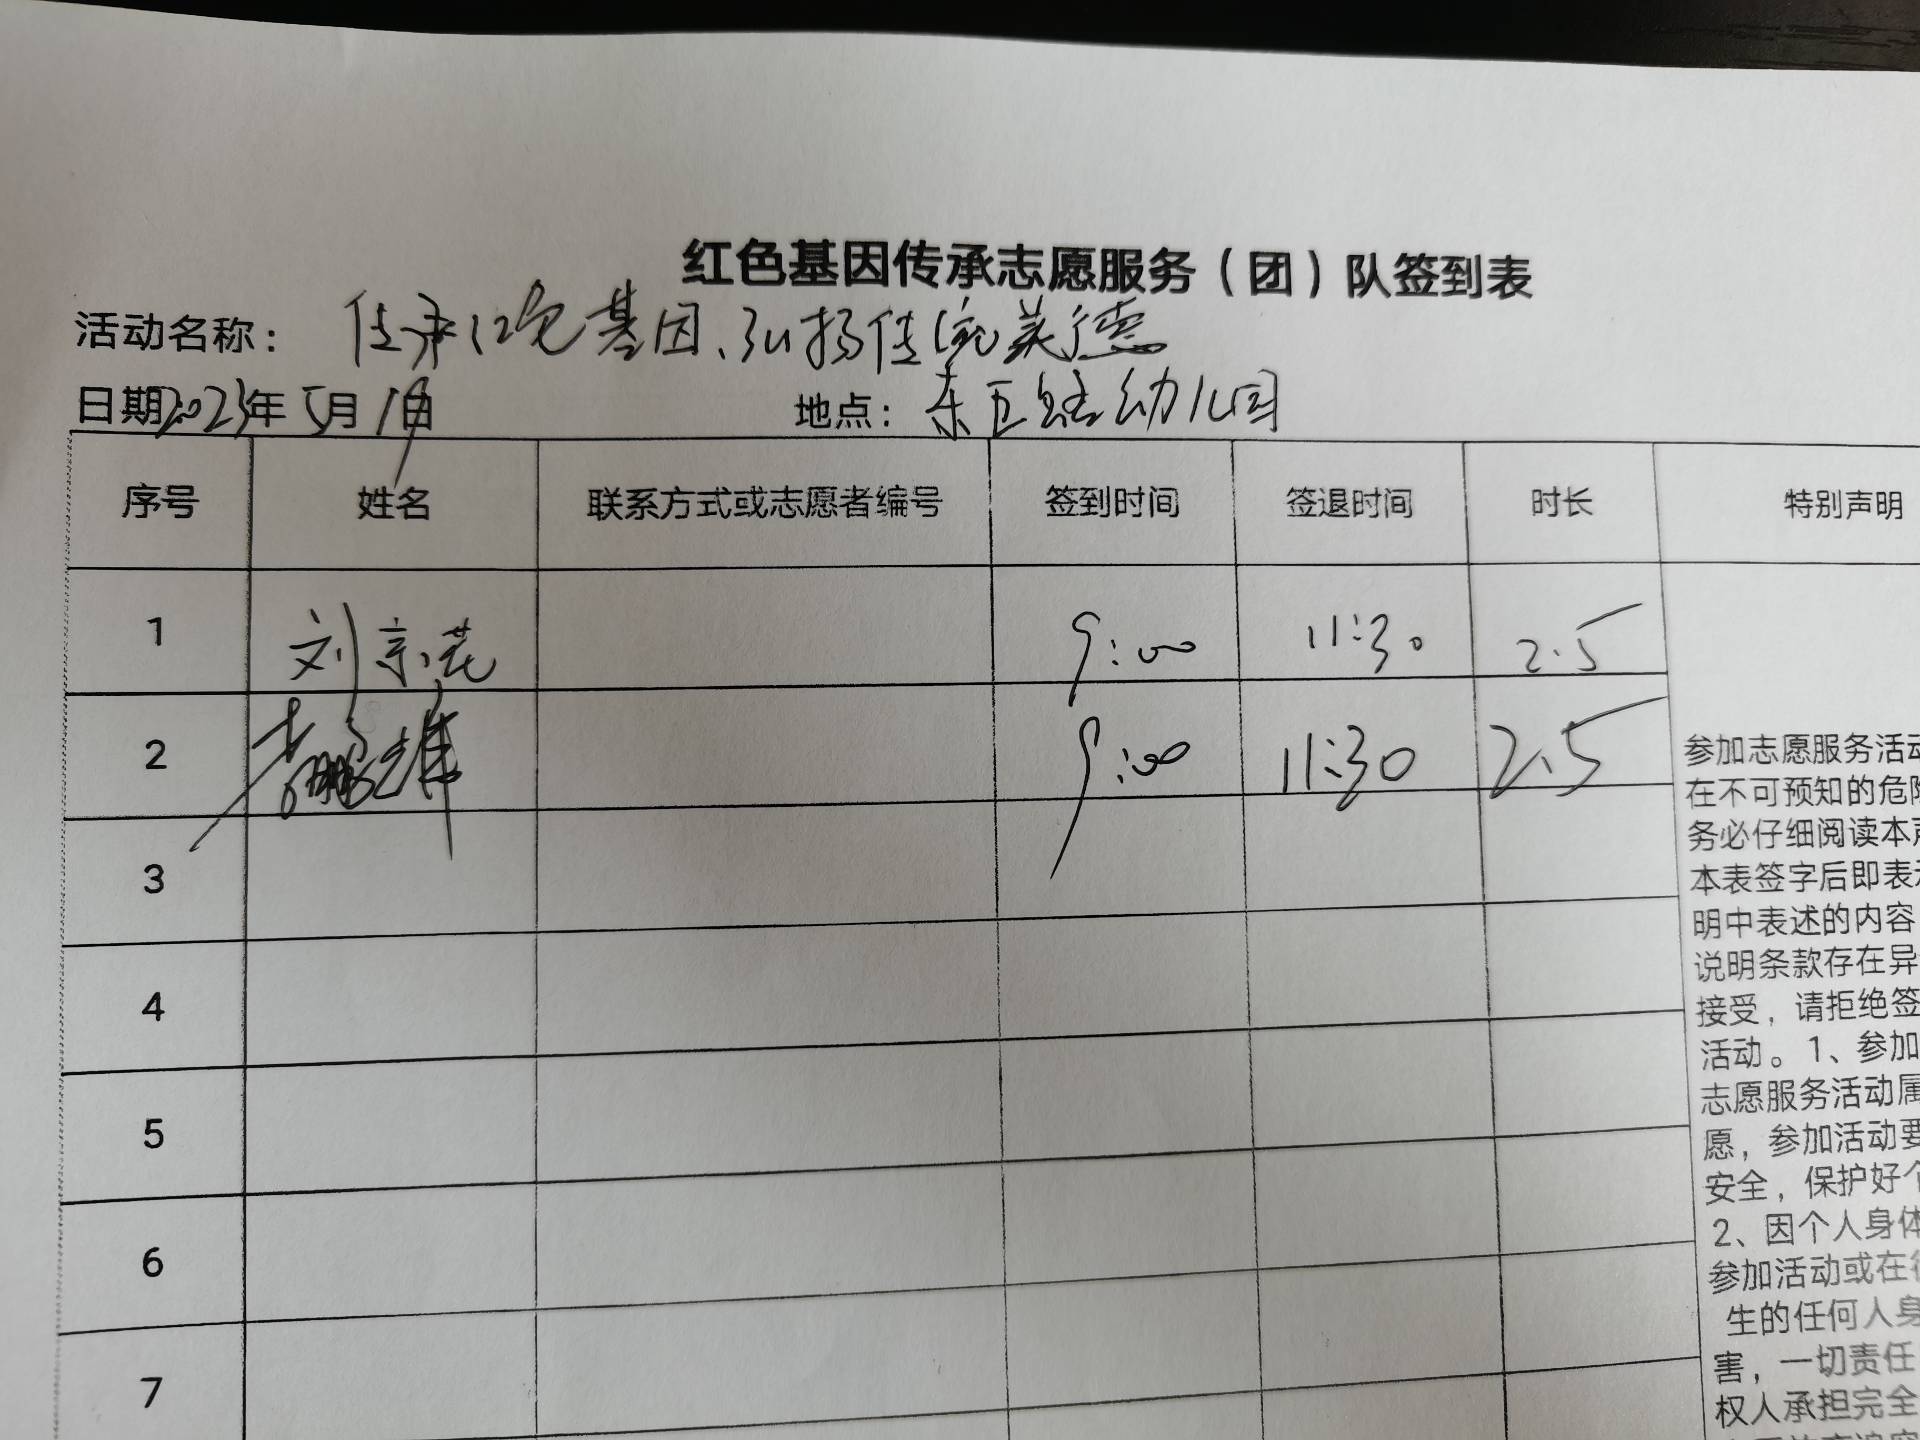 红色基因传承志愿服务（团）队签到表
活动名称： 传承红色基因、弘扬传统美德
日期2023年5月19日 地点： 东正路幼儿园
序号 姓名 联系方式或志愿者编号 签到时间 签退时间 时长 特别声明
1 刘京花 9:00 11:30 2.5
2 9:00 11:30 2.5
3
4
5
6
7
参加志愿服务活动
在不可预知的危险
务必仔细阅读本声
本表签字后即表示
明中表述的内容
说明条款存在异
接受，请拒绝签
活动。1、参加
志愿服务活动属
愿，参加活动要
安全，保护好个
2、因个人身体
参加活动或在往
生的任何人身
害，一切责任
权人承担完全